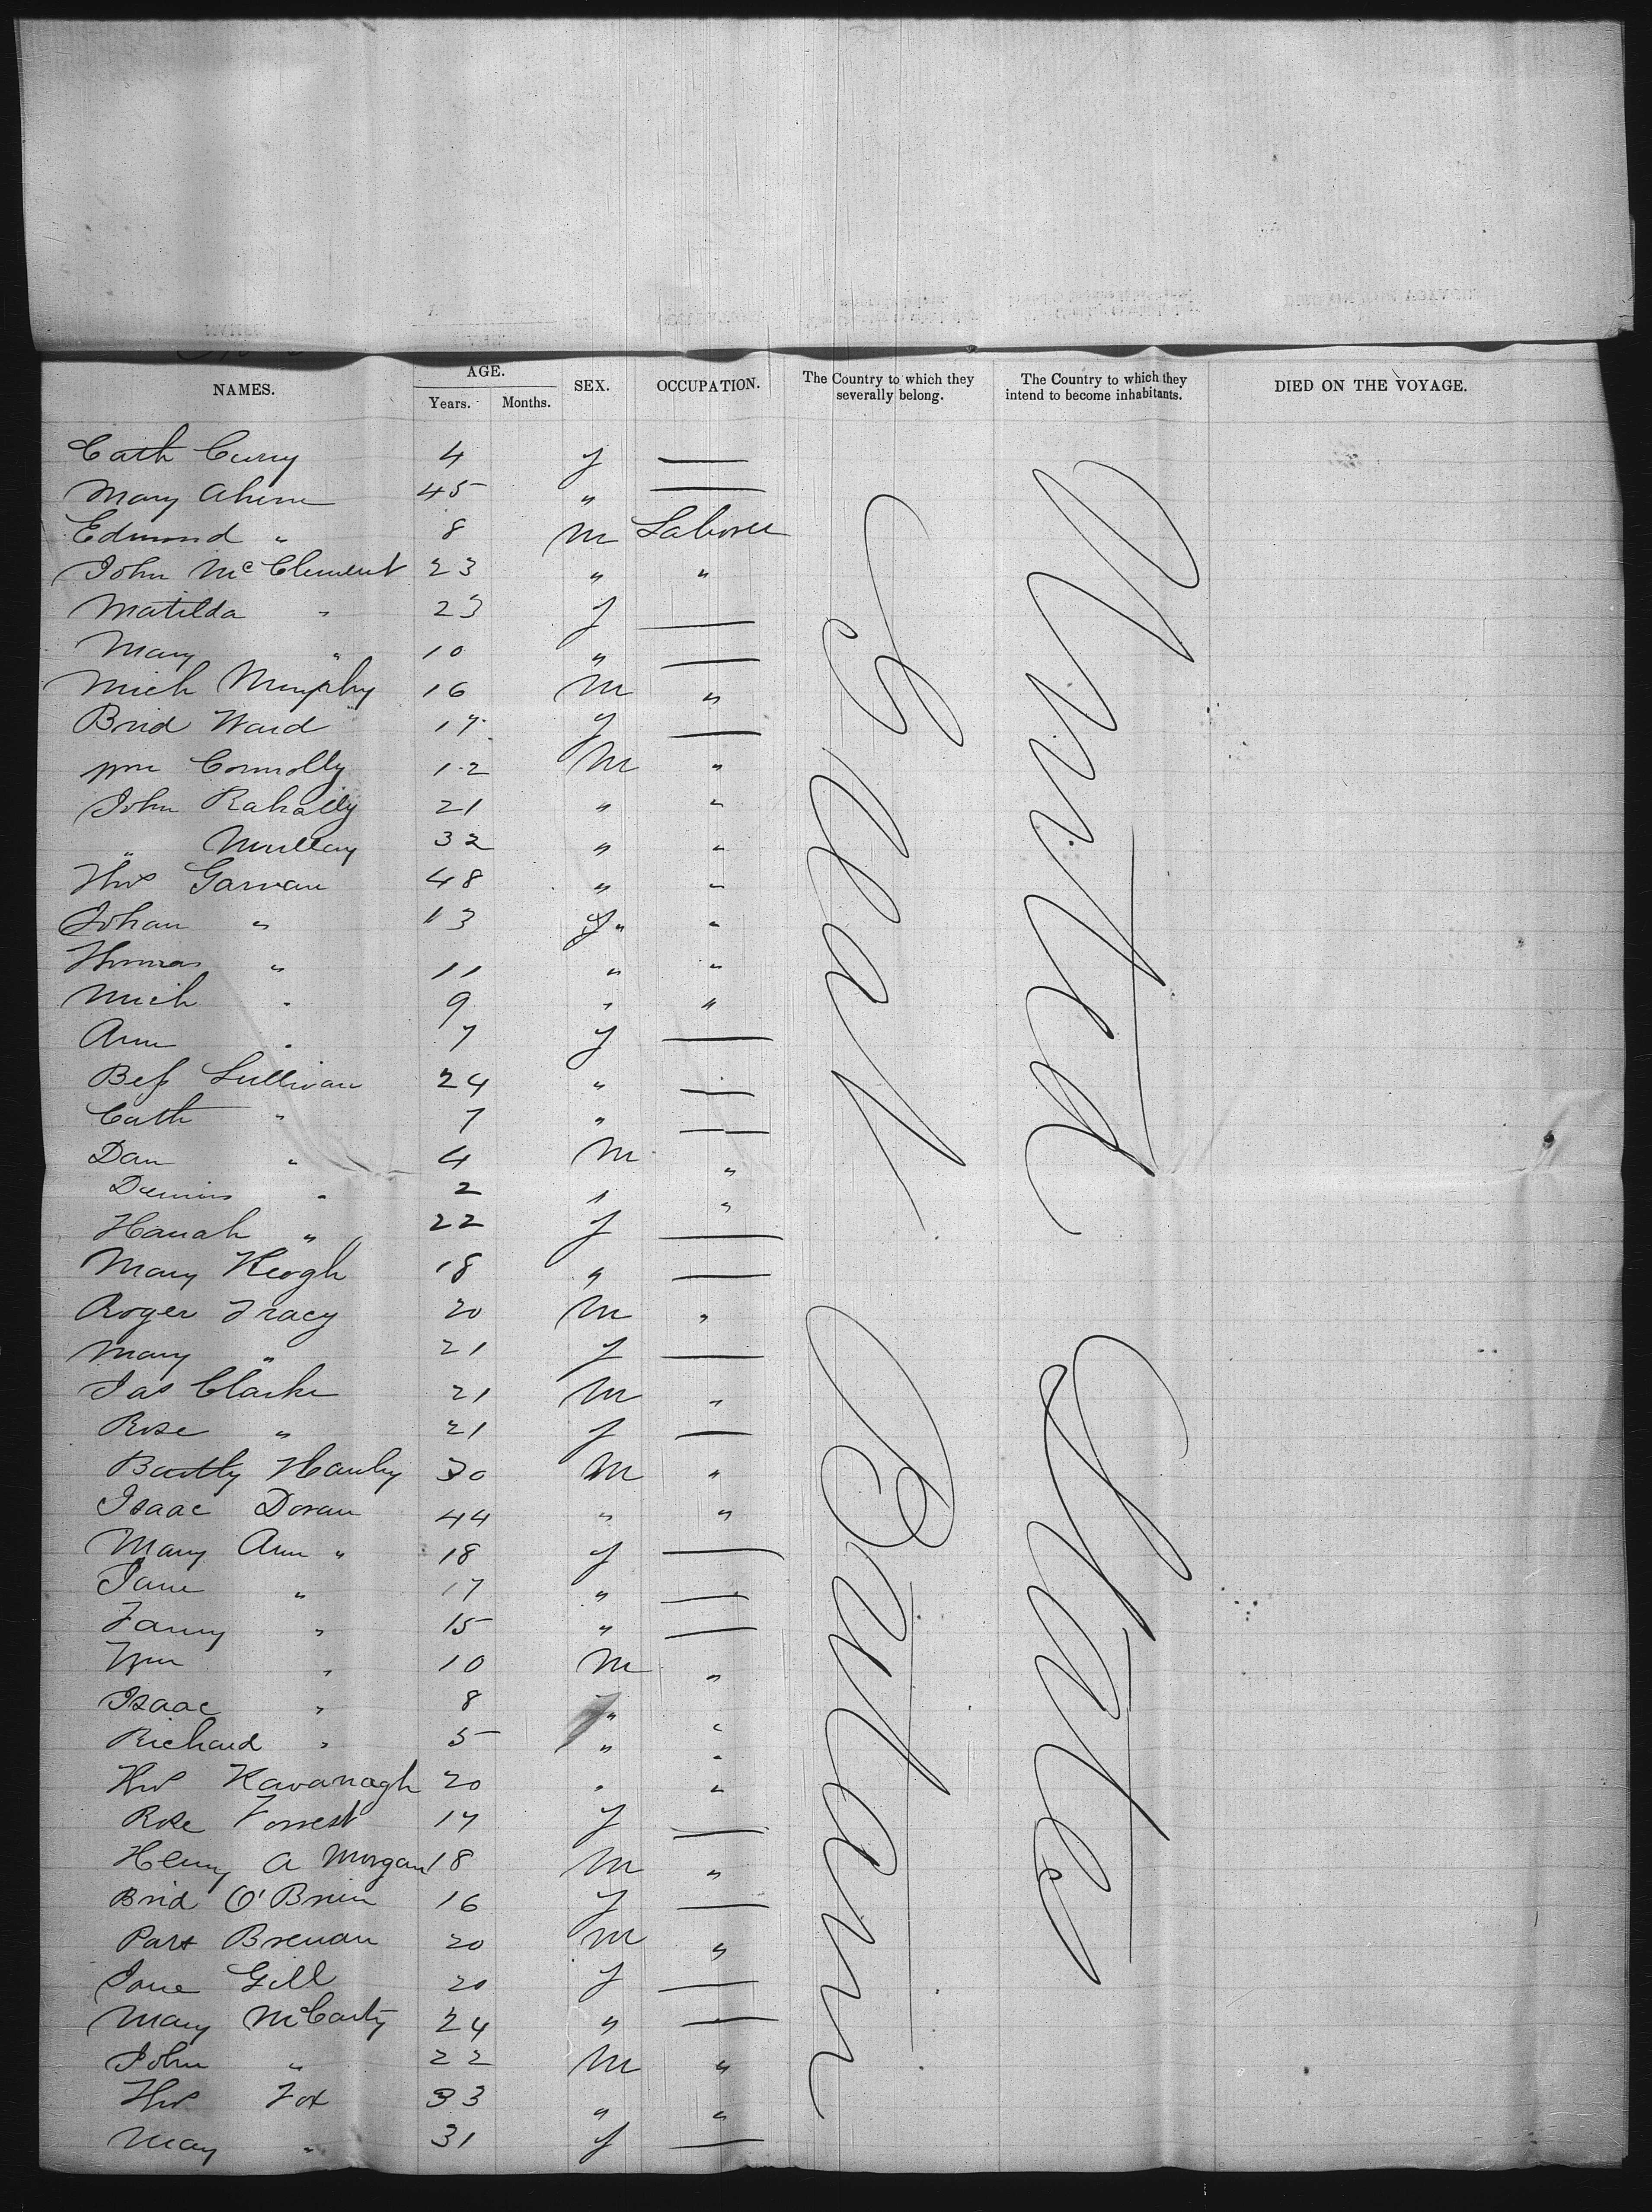 NAMES. AGE. SEX. OCCUPATION. The Country to which they severally belong. The Country to which they intend to become inhabitants. DIED ON THE VOYAGE.
Years. Months.
Great Britain
United States
Cath Curry 4 f —
Mary Ahern 45 " —
Edmond " 8 M Laborer
John McClement 23 " "
Matilda " 23 f —
Mary " 10 " —
Mich Murphy 16 M "
Brid Ward 17 f —
Wm Connolly 12 M "
John Rahailly 21 " "
" Mullay 32 " "
Thos Garvan 48 " "
Johan " 13 f " "
Thomas " 11 " "
Mich " 9 " "
Ann " 7 f —
Bess Sullivan 24 " —
Cath " 7 " —
Dan " 4 M "
Dennis " 2 " "
Hanah " 22 f —
Mary Keogh 18 " —
Roger Tracy 20 M "
Mary " 21 f —
Jas Clarke 21 M "
Rose " 21 f —
Bartly Hanly 30 M "
Isaac Doran 44 " "
Mary Ann " 18 f —
Jane " 17 " —
Fanny " 15 " —
Wm " 10 M "
Isaac " 8 " "
Richard " 5 " "
Thos Kavanagh 20 " "
Rose Forrest 17 f —
Henry A Morgan 18 M "
Brid O'Brien 16 f —
Patt Brenan 20 M "
Jane Gill 20 f —
Mary McCarty 24 " —
John " 22 M "
Thos Fox 33 " "
Mary " 31 f —